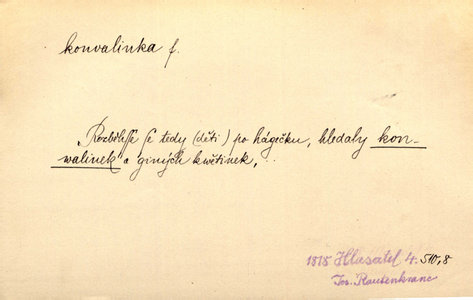 konvalinka f.
„Rozběhše se tedy (děti) po hágečku, hledaly kon-
walinek a giných kwětinek, ..
1818 Hlasatel 4. 510,8
Jos. Rautenkranc